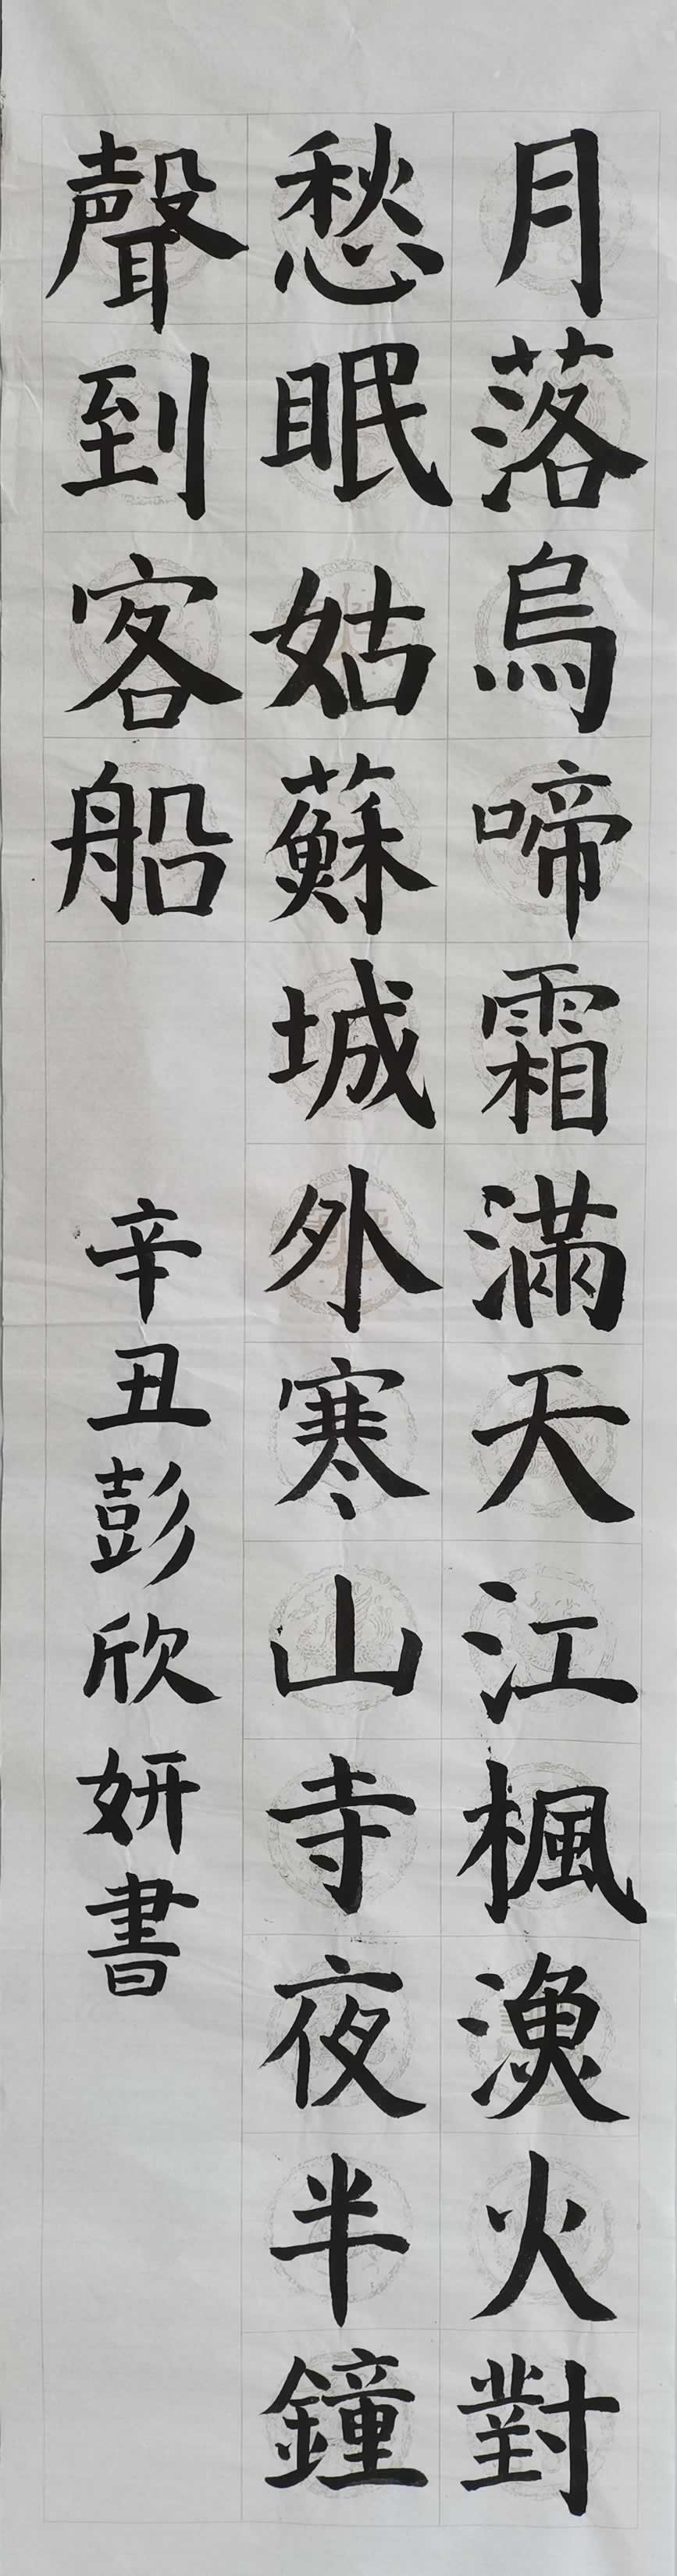 月落烏啼霜滿天江楓漁火對
愁眠姑蘇城外寒山寺夜半鐘
聲到客船
辛丑彭欣妍書